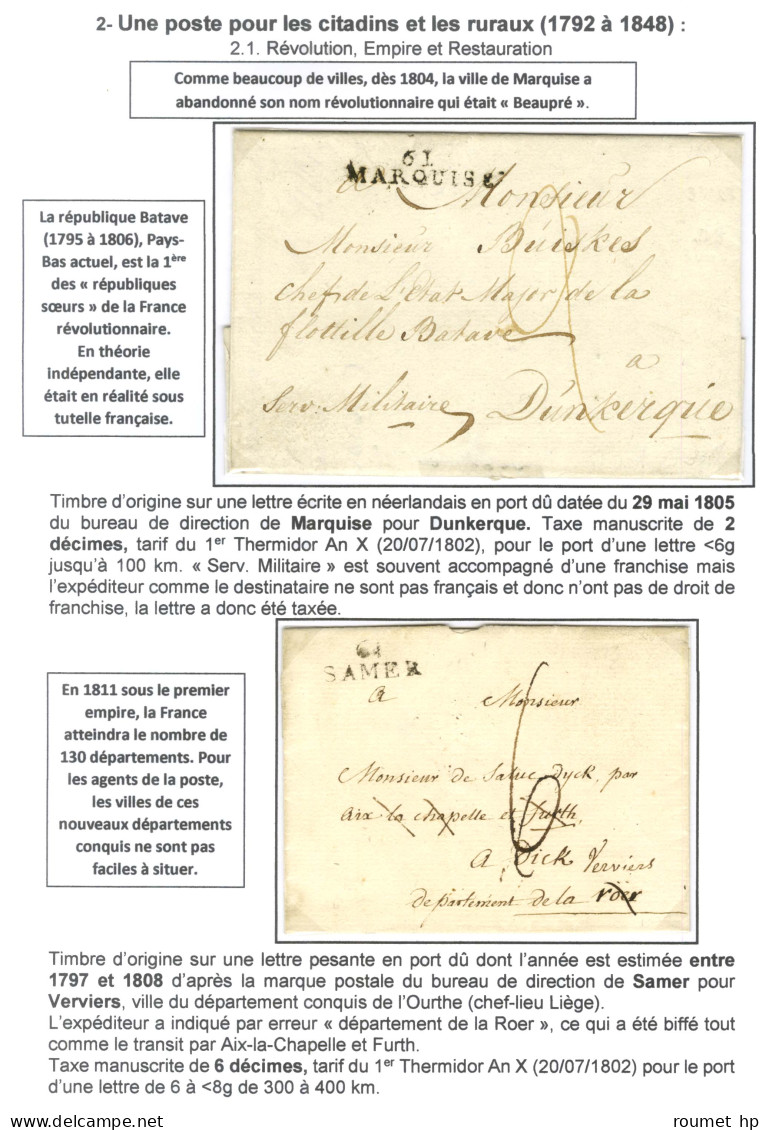 2- Une poste pour les citadins et les ruraux (1792 à 1848) :
2.1. Révolution, Empire et Restauration
Comme beaucoup de villes, dès 1804, la ville de Marquise a
abandonné son nom révolutionnaire qui était « Beaupré ».
La république Batave
(1795 à 1806), Pays-
Bas actuel, est la 1ère
des « républiques
sœurs » de la France
révolutionnaire.
En théorie
indépendante, elle
était en réalité sous
tutelle française.
61
MARQUISE
a Monsieur
Monsieur Buiskes
chef de L'Etat Major de la
flottille Batave
a
Serv. Militaire Dunkerque
2
Timbre d'origine sur une lettre écrite en néerlandais en port dû datée du 29 mai 1805
du bureau de direction de Marquise pour Dunkerque. Taxe manuscrite de 2
décimes, tarif du 1er Thermidor An X (20/07/1802), pour le port d'une lettre <6g
jusqu'à 100 km. « Serv. Militaire » est souvent accompagné d'une franchise mais
l'expéditeur comme le destinataire ne sont pas français et donc n'ont pas de droit de
franchise, la lettre a donc été taxée.
En 1811 sous le premier
empire, la France
atteindra le nombre de
130 départements. Pour
les agents de la poste,
les villes de ces
nouveaux départements
conquis ne sont pas
faciles à situer.
61
SAMER
a Monsieur
Monsieur de Saluc dyck, par
aix la chapelle et furth,
A Dick Verviers
departement de la roer
6
Timbre d'origine sur une lettre pesante en port dû dont l'année est estimée entre
1797 et 1808 d'après la marque postale du bureau de direction de Samer pour
Verviers, ville du département conquis de l'Ourthe (chef-lieu Liège).
L'expéditeur a indiqué par erreur « département de la Roer », ce qui a été biffé tout
comme le transit par Aix-la-Chapelle et Furth.
Taxe manuscrite de 6 décimes, tarif du 1er Thermidor An X (20/07/1802) pour le port
d'une lettre de 6 à <8g de 300 à 400 km.
roumet hp